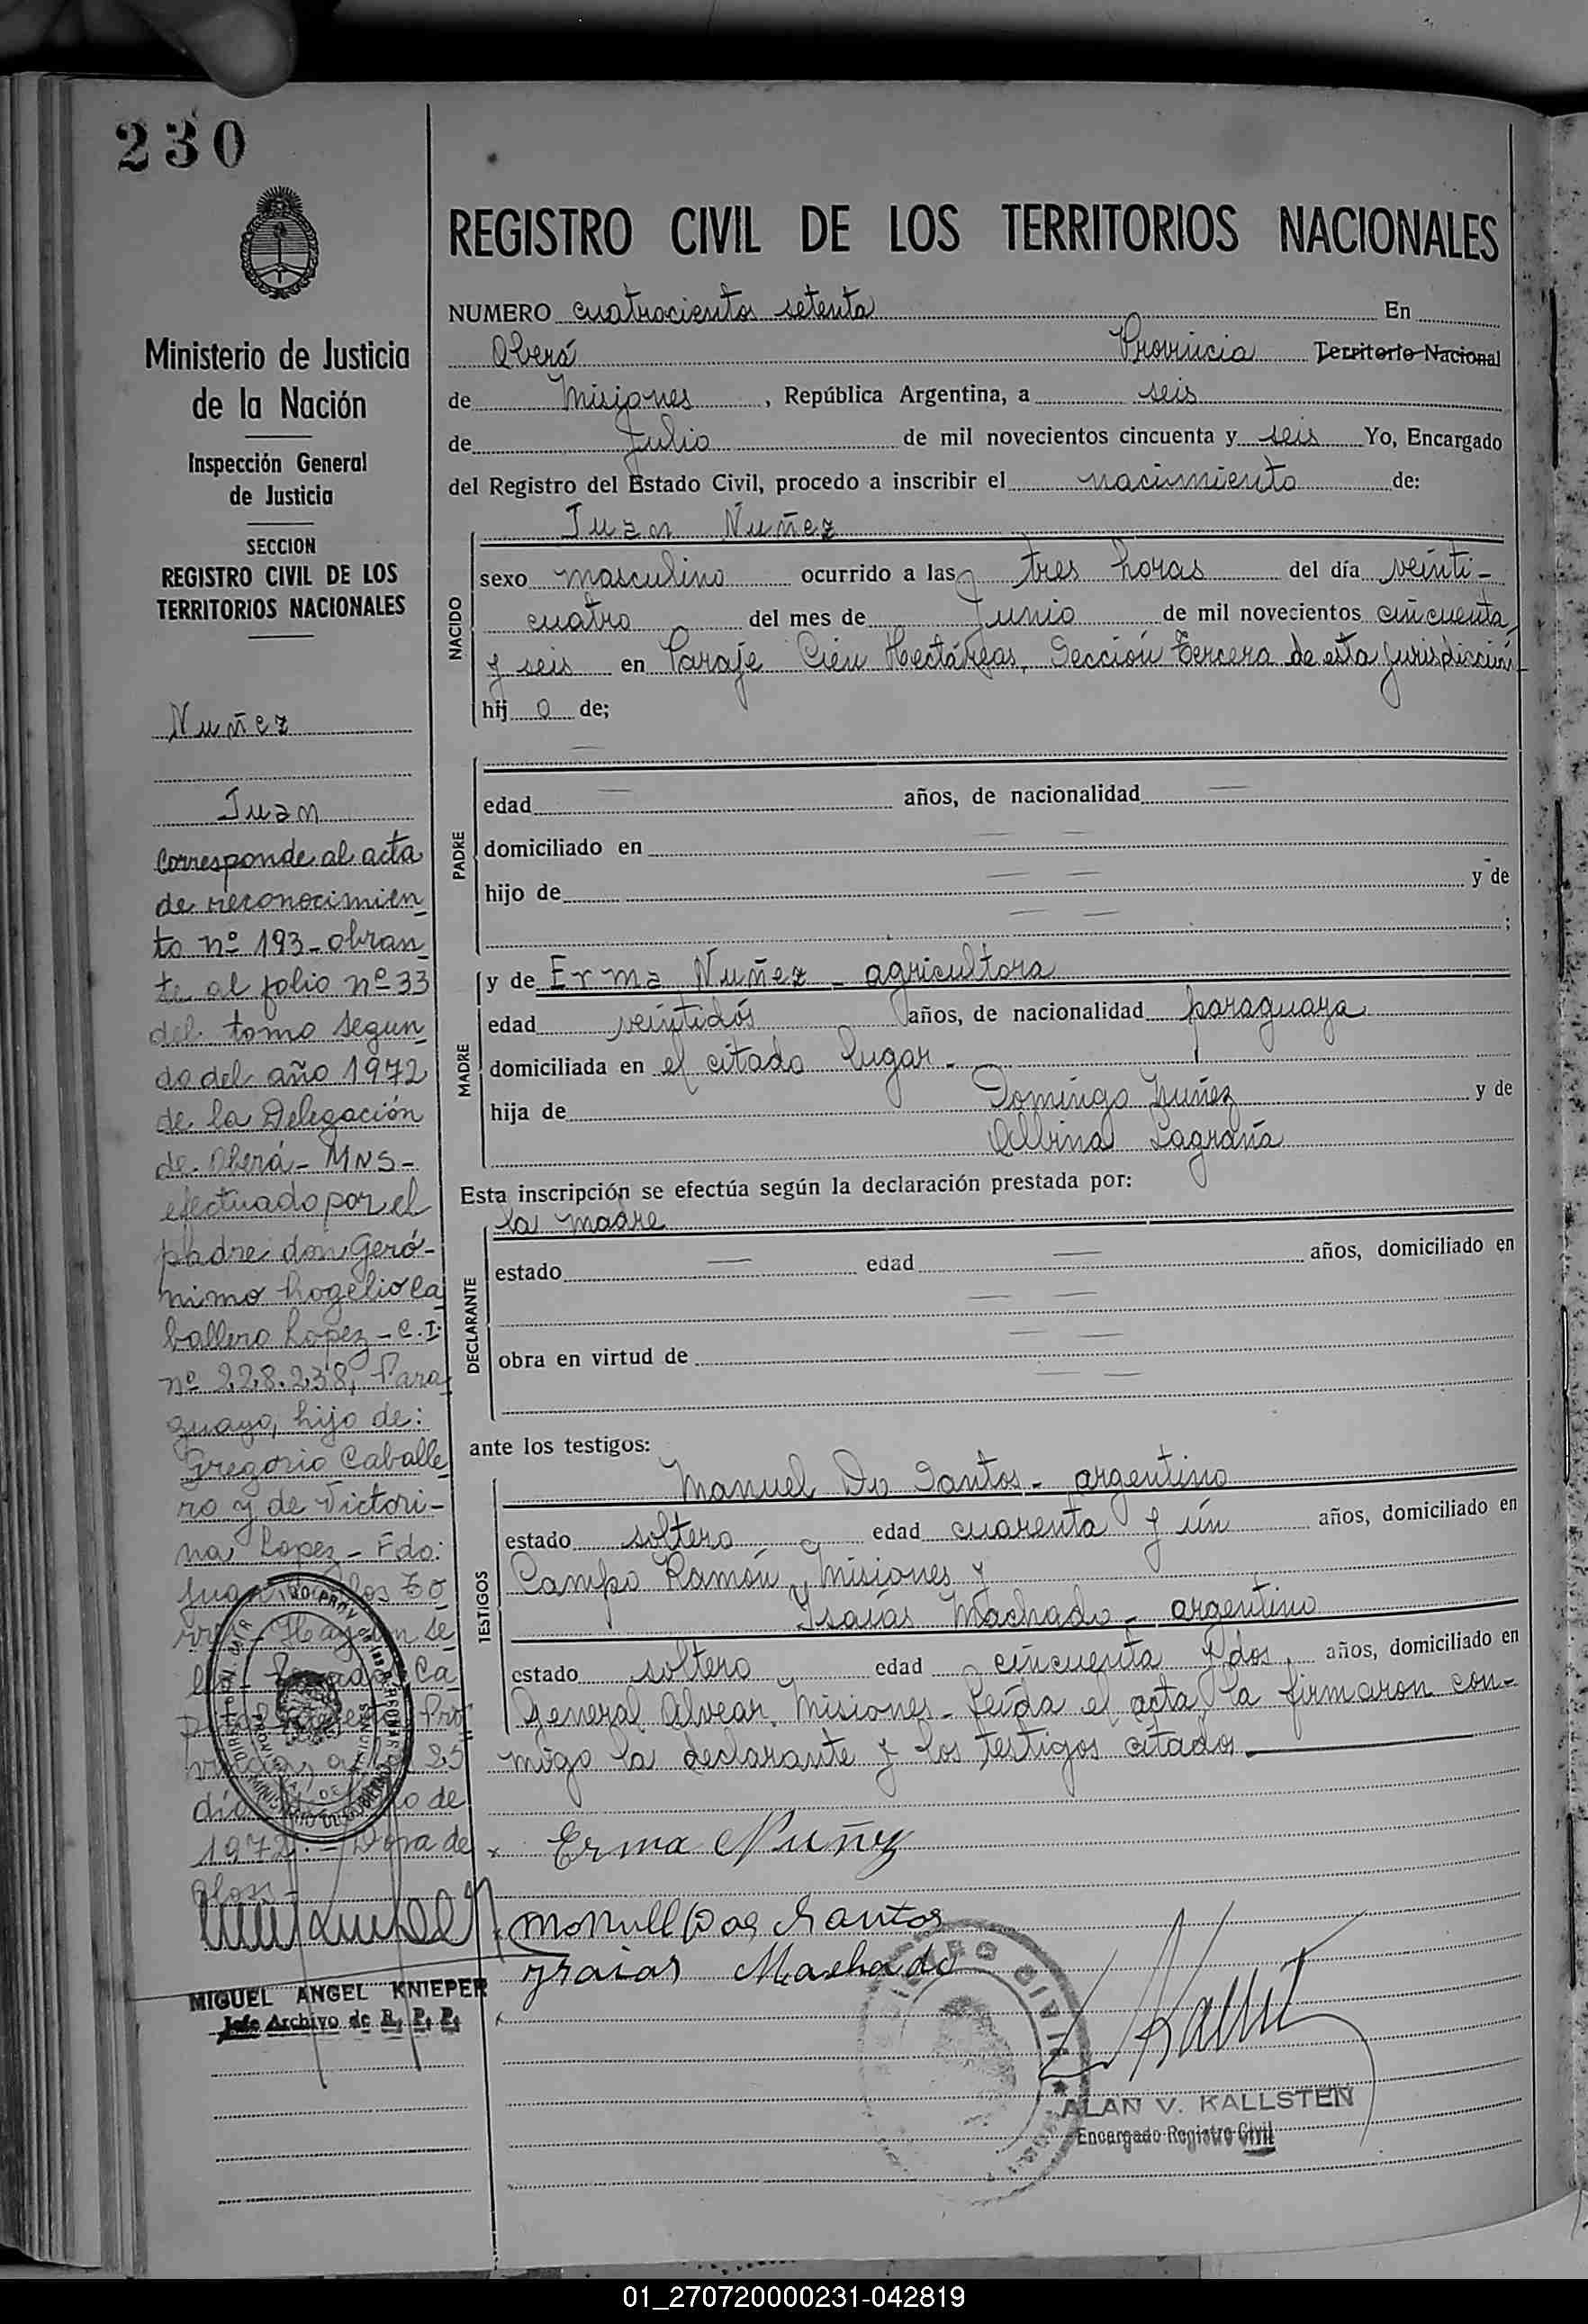 230
Ministerio de Justicia
de la Nación
Inspección General
de Justicia
SECCION
REGISTRO CIVIL DE LOS
TERRITORIOS NACIONALES
Nuñez
Juan
Corresponde al acta
de reconocimien
to nº 193-obran
te al folio nº 33
del tomo segun
do del año 1972
de la Delegación
de Oberá - MNS-
efectuado por el
padre don Geró-
nimo Rogelio Ca
ballero Lopez - C.I.
nº 228.238, Para
guayo, hijo de:
Gregorio Caballe
ro y de Victori-
na Lopez - Fdo:
1972.- Dora de
MIGUEL ANGEL KNIEPER
Jefe Archivo de R. P. P.
REGISTRO CIVIL DE LOS TERRITORIOS NACIONALES
NUMERO cuatrocientos setenta En
Oberá Provincia Territorio Nacional
de Misiones, República Argentina, a seis
de Julio de mil novecientos cincuenta y seis Yo, Encargado
del Registro del Estado Civil, procedo a inscribir el nacimiento de:
NACIDO
Juan Nuñez
sexo masculino ocurrido a las tres horas del día veinti-
cuatro del mes de Junio de mil novecientos cincuenta
y seis en Paraje Cien Hectáreas, Sección Tercera de esta jurisdicción
hij o de;
PADRE
edad — años, de nacionalidad —
domiciliado en — —
hijo de — — y de
— — ;
MADRE
y de Erma Nuñez - agricultora
edad veintidós años, de nacionalidad paraguaya
domiciliada en el citado lugar -
hija de Domingo Nuñez y de
Albina Lagraña
Esta inscripción se efectúa según la declaración prestada por:
DECLARANTE
la madre
estado — edad — años, domiciliado en
— —
obra en virtud de — —
— —
ante los testigos:
TESTIGOS
Manuel Do Santos - argentino
estado soltero edad cuarenta y ún años, domiciliado en
Campo Ramón, Misiones y
Isaías Machado - argentino
estado soltero edad cincuenta y dos, años, domiciliado en
General Alvear, Misiones - Leída el acta, la firmaron con-
migo la declarante y los testigos citados
Erma Nuñez
Santos
Machado
ALAN V. KALLSTEN
Encargado Registro Civil
01_270720000231-042819